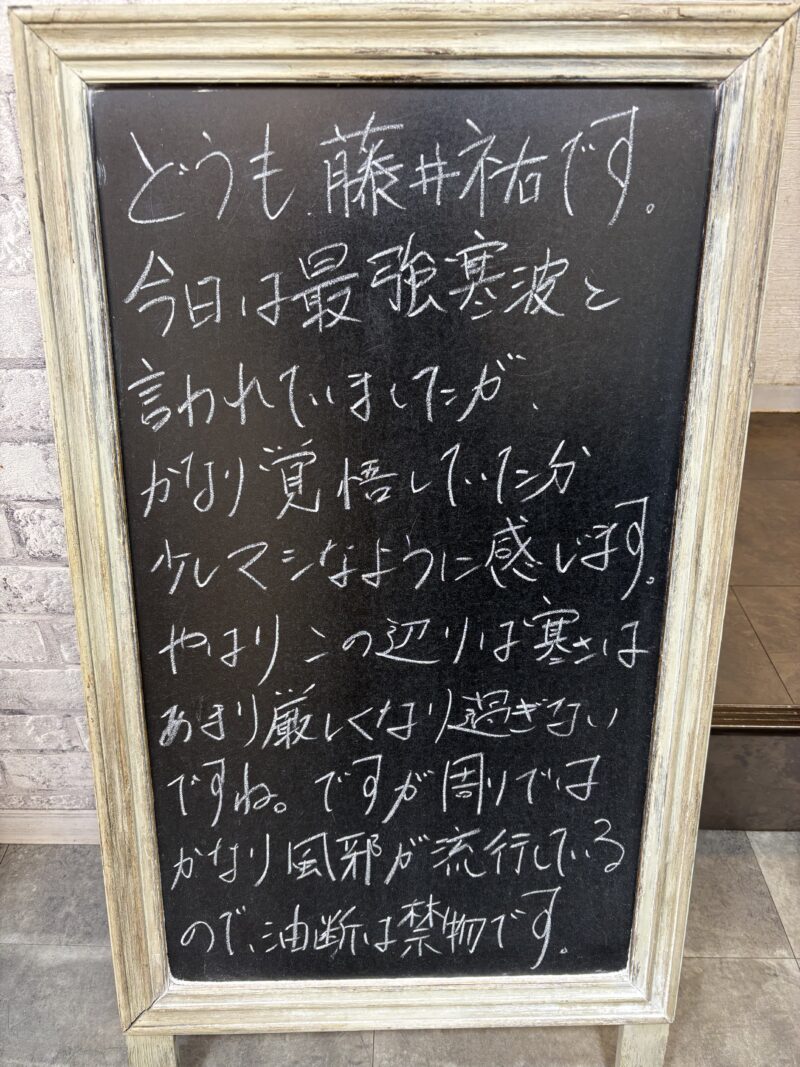 どうも、藤井祐です。
今日は最強寒波と
言われていましたが、
かなり覚悟していた分
少しマシなように感じます。
やはりこの辺りは寒さは
あまり厳しくなり過ぎない
ですね。ですが周りでは
かなり風邪が流行している
ので、油断は禁物です。